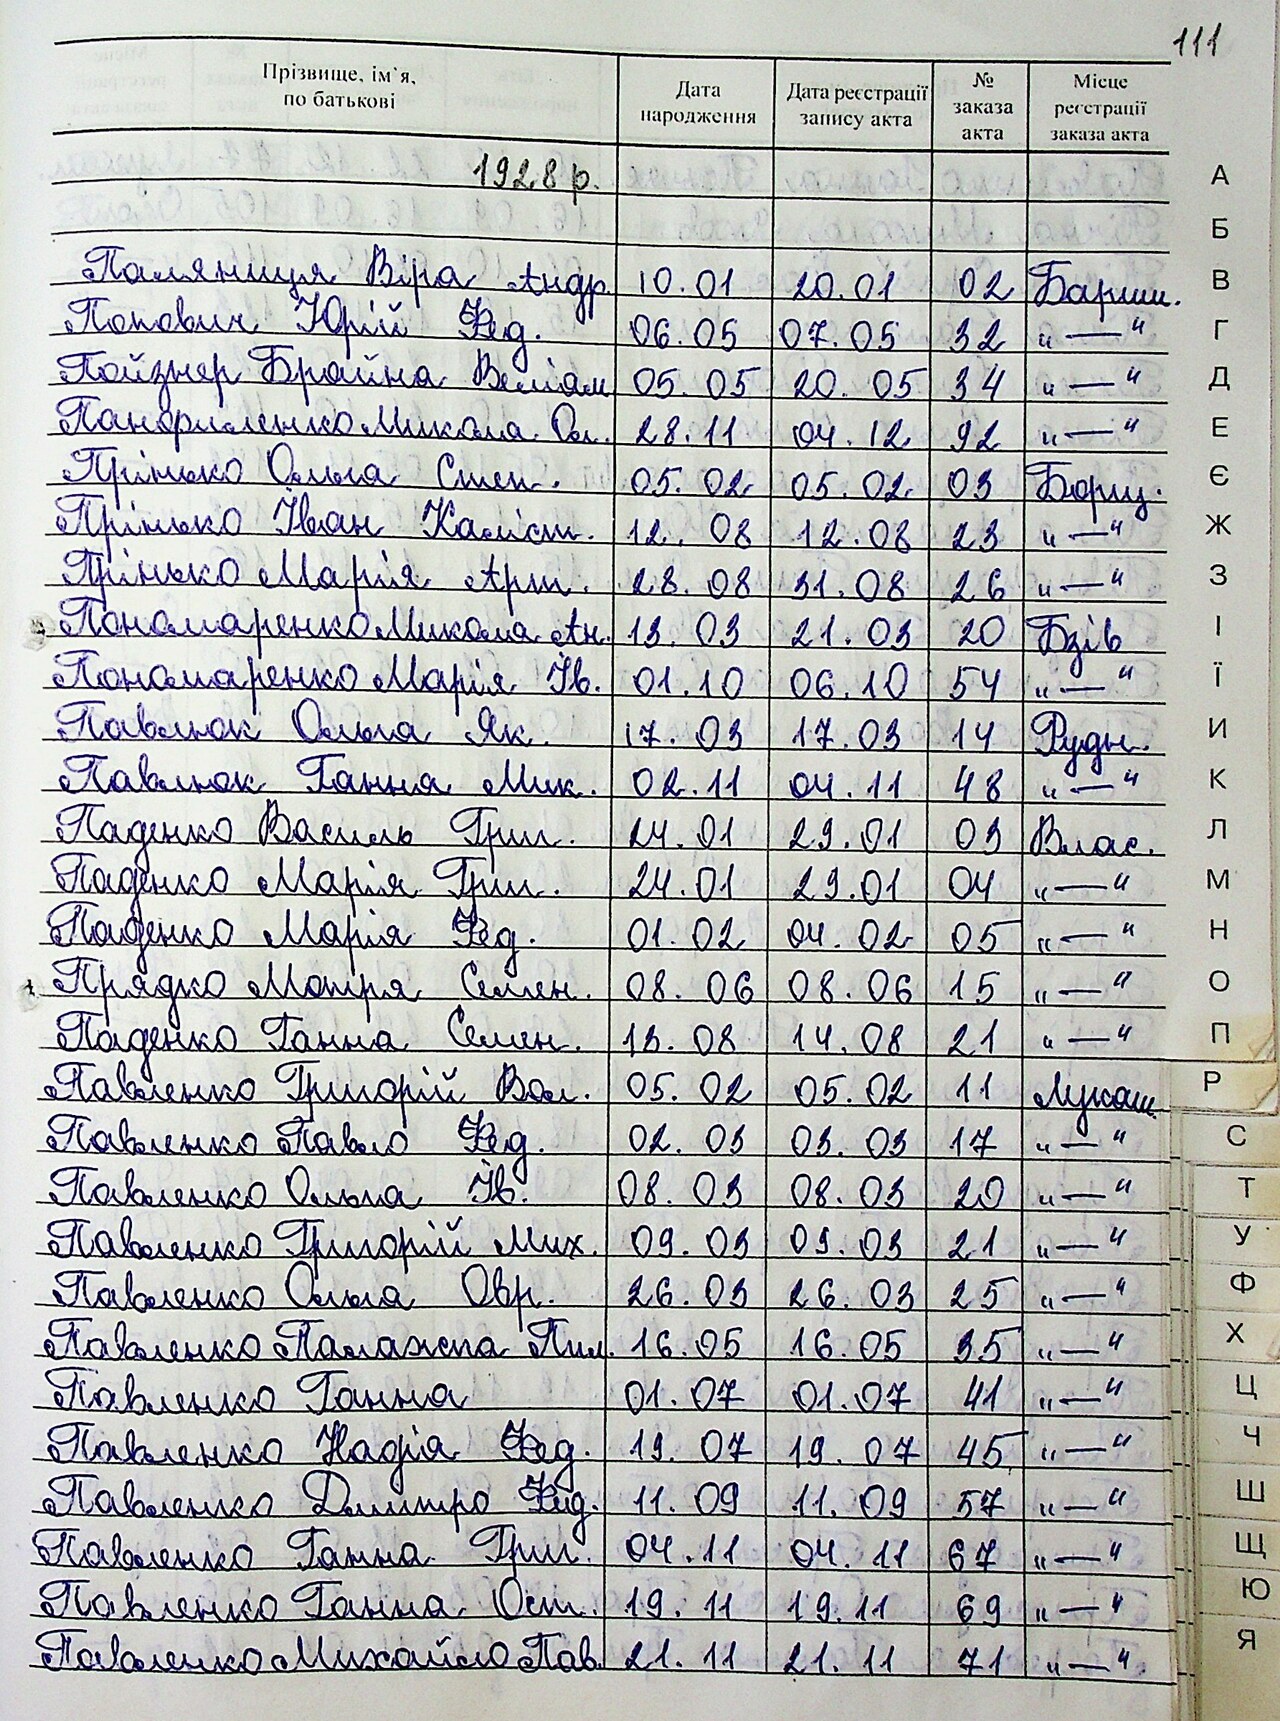 111
Прізвище, ім'я, по батькові Дата народження Дата реєстрації запису акта № заказа акта Місце реєстрації заказа акта
1928 р.
Паляниця Віра Андр. 10.01 20.01 02 Бариш.
Попович Юрій Фед. 06.05 07.05 32 „—"
Пойзнер Брайна Веліям 05.05 20.05 34 „—"
Панфиленко Микола Ол. 28.11 04.12 92 „—"
Прінько Ольга Степ. 05.02 05.02 03 Борщ.
Прінько Іван Каліст. 12.08 12.08 23 „—"
Прінько Марія Арт. 28.08 31.08 26 „—"
Пономаренко Микола Ан. 13.03 21.03 20 Бзів
Пономаренко Марія Ів. 01.10 06.10 54 „—"
Павлюк Ольга Як. 17.03 17.03 14 Рудн.
Павлюк Ганна Мик. 02.11 04.11 48 „—"
Паденко Василь Григ. 24.01 29.01 03 Влас.
Паденко Марія Григ. 24.01 29.01 04 „—"
Паденко Марія Фед. 01.02 04.02 05 „—"
Прядко Мотря Семен. 08.06 08.06 15 „—"
Паденко Ганна Семен. 13.08 14.08 21 „—"
Павленко Григорій Вол. 05.02 05.02 11 Лукаш.
Павленко Павло Фед. 02.03 03.03 17 „—"
Павленко Ольга Ів. 08.03 08.03 20 „—"
Павленко Григорій Мих. 09.03 09.03 21 „—"
Павленко Ольга Овр. 26.03 26.03 25 „—"
Павленко Палажка Пил. 16.05 16.05 35 „—"
Павленко Ганна 01.07 01.07 41 „—"
Павленко Надія Фед. 19.07 19.07 45 „—"
Павленко Дмитро Фед. 11.09 11.09 57 „—"
Павленко Ганна Григ. 04.11 04.11 67 „—"
Павленко Ганна Ост. 19.11 19.11 69 „—"
Павленко Михайло Пав. 21.11 21.11 71 „—"
А
Б
В
Г
Д
Е
Є
Ж
З
І
Ї
И
К
Л
М
Н
О
П
Р
С
Т
У
Ф
Х
Ц
Ч
Ш
Щ
Ю
Я